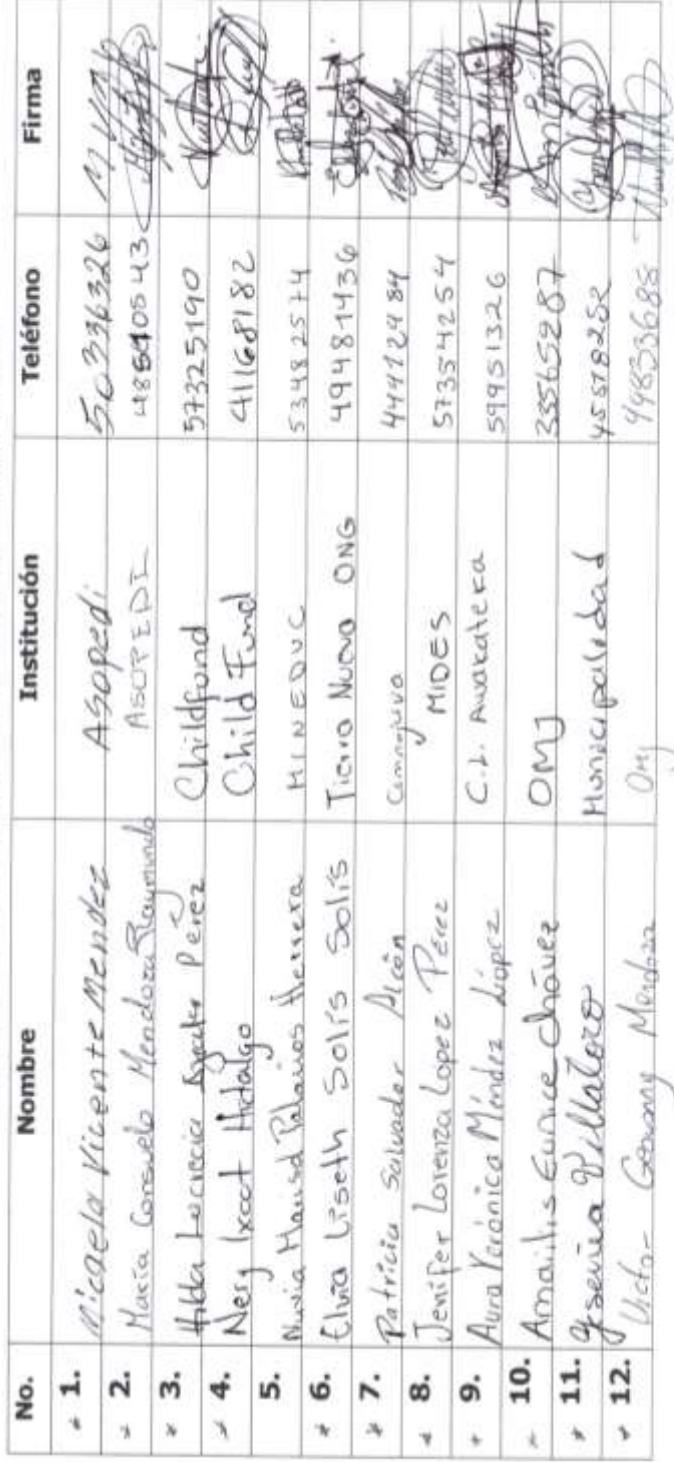 No. Nombre Institución Teléfono Firma
1. Micaela Vicente Mendez Asopedi 50336326
2. María Consuelo Mendoza Raymundo ASOPEDI
3. Hilda Lucrecia Pérez Childfond 57325190
4. Nesy Ixcot Hidalgo Child Fund 41168182
5. Nuvia Marisol Palacios Herrera MINEDUC 53482574
6. Elvia Liseth Solís Solís Tierra Nueva ONG 49481436
7. Patricia Salvador Alcón 44412484
8. Jenifer Lorenza Lopez Pérez MIDES 57354254
9. Aura Verónica Méndez López C.L. Awakateka 59951326
10. Amarilis Eunice Chávez OMJ 33565287
11. Yseña Villatoro Municipalidad 45578252
12. Victor Geovanny Mendoza OMJ 49853688